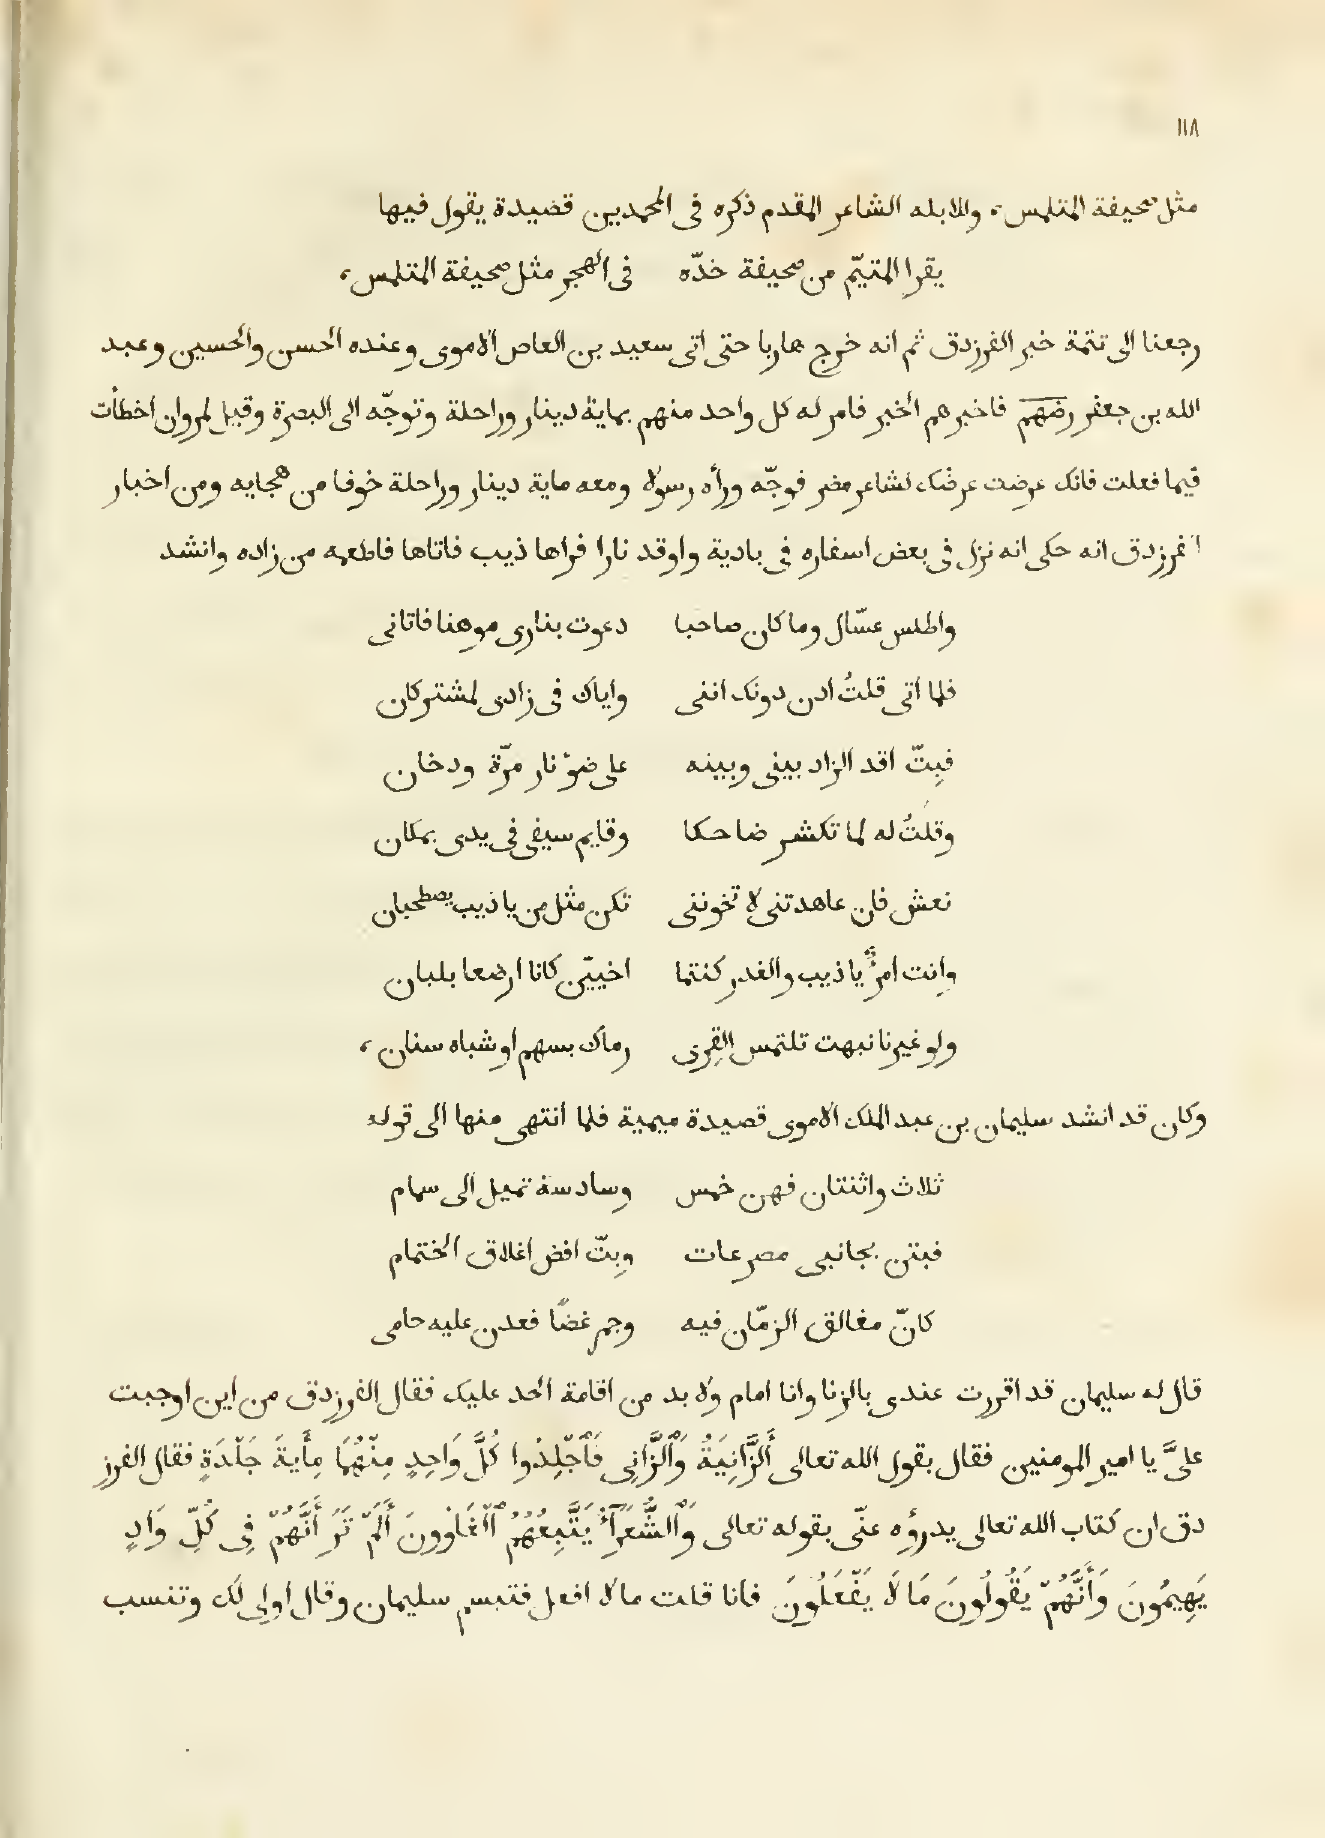 ١١٨
مثل صحيفة المتلمس، وللابله الشاعر المقدم ذكره فى المحمدين قصيدة يقول فيها
يقرا المتيّم من صحيفة خدّه فى الهجر مثل صحيفة المتلمس،
رجعنا الى تتمة خبر الفرزدق ثم انه خرج هاربا حتى اتى سعيد بن العاص الاموى وعنده الحسن والحسين وعبد
الله بن جعفر رضهم فاخبرهم الخبر فامر له كل واحد منهم بماية دينار وراحلة وتوجّه الى البصرة وقيل لمروان اخطأت
فيما فعلت فانك عرضت عرضك لشاعر مضر فوجّه ورأه رسولا ومعه ماية دينار وراحلة خوفا من هجايه ومن اخبار
الفرزدق انه حكى انه نزل فى بعض اسفاره فى بادية واوقد نارا فراها ذيب فاتاها فاطعمه من زاده وانشد
واطلس عسّال وما كان صاحبا دعوت بنارى موهنا فاتانى
فلما اتى قلتُ ادن دونك اننى واياك فى زادى لمشتركان
فبِتّ اقد الزاد بينى وبينه على ضوْ نار مرّة ودخان
وقلتُ له لما تكشر ضاحكا وقايم سيفى فى يدى بمكان
تعش فان عاهدتنى لا تخوننى تكن مثل من يا ذيب يصطحبان
وانت امرؤٌ يا ذيب والغدر كنتما اخييّن كانا ارضعا بلبان
ولو غيرنا نبهت تلتمس القِرى رماك بسهم او شباه سنان،
وكان قد انشد سليمان بن عبد الملك الاموى قصيدة ميمية فلما انتهى منها الى قوله
ثلاث واثنتان فهن خمس وسادسة تميل الى سمام
فبتن بجانبى مصرعات وبِتّ افض اغلاق الختمام
كانّ مغالق الزمّان فيه وجمر غضًا قعدن عليه حامى
قال له سليمان قد اقررت عندى بالزنا وانا امام ولا بد من اقامة الحد عليك فقال الفرزدق من اين اوجبت
علىَّ يا امير المومنين فقال بقول الله تعالى أَلزَّانِيَةُ وَٱلزَّانِى فَٱجْلِدُوا كُلَّ وَاحِدٍ مِنْهُمَا مِأَيةَ جَلْدَةٍ فقال الفرز
دق ان كتاب الله تعالى يدرؤه عنّى بقوله تعالى وَٱلشُّعَرَآءُ يَتَّبِعُهُمُ ٱلْغَاوُونَ أَلَمْ تَرَ أَنَّهُمْ فِى كُلِّ وَادٍ
يَهِيمُونَ وَأَنَّهُمْ يَقُولُونَ مَا لَا يَفْعَلُونَ فانا قلت ما لا افعل فتبسم سليمان وقال اولى لك وتنسب